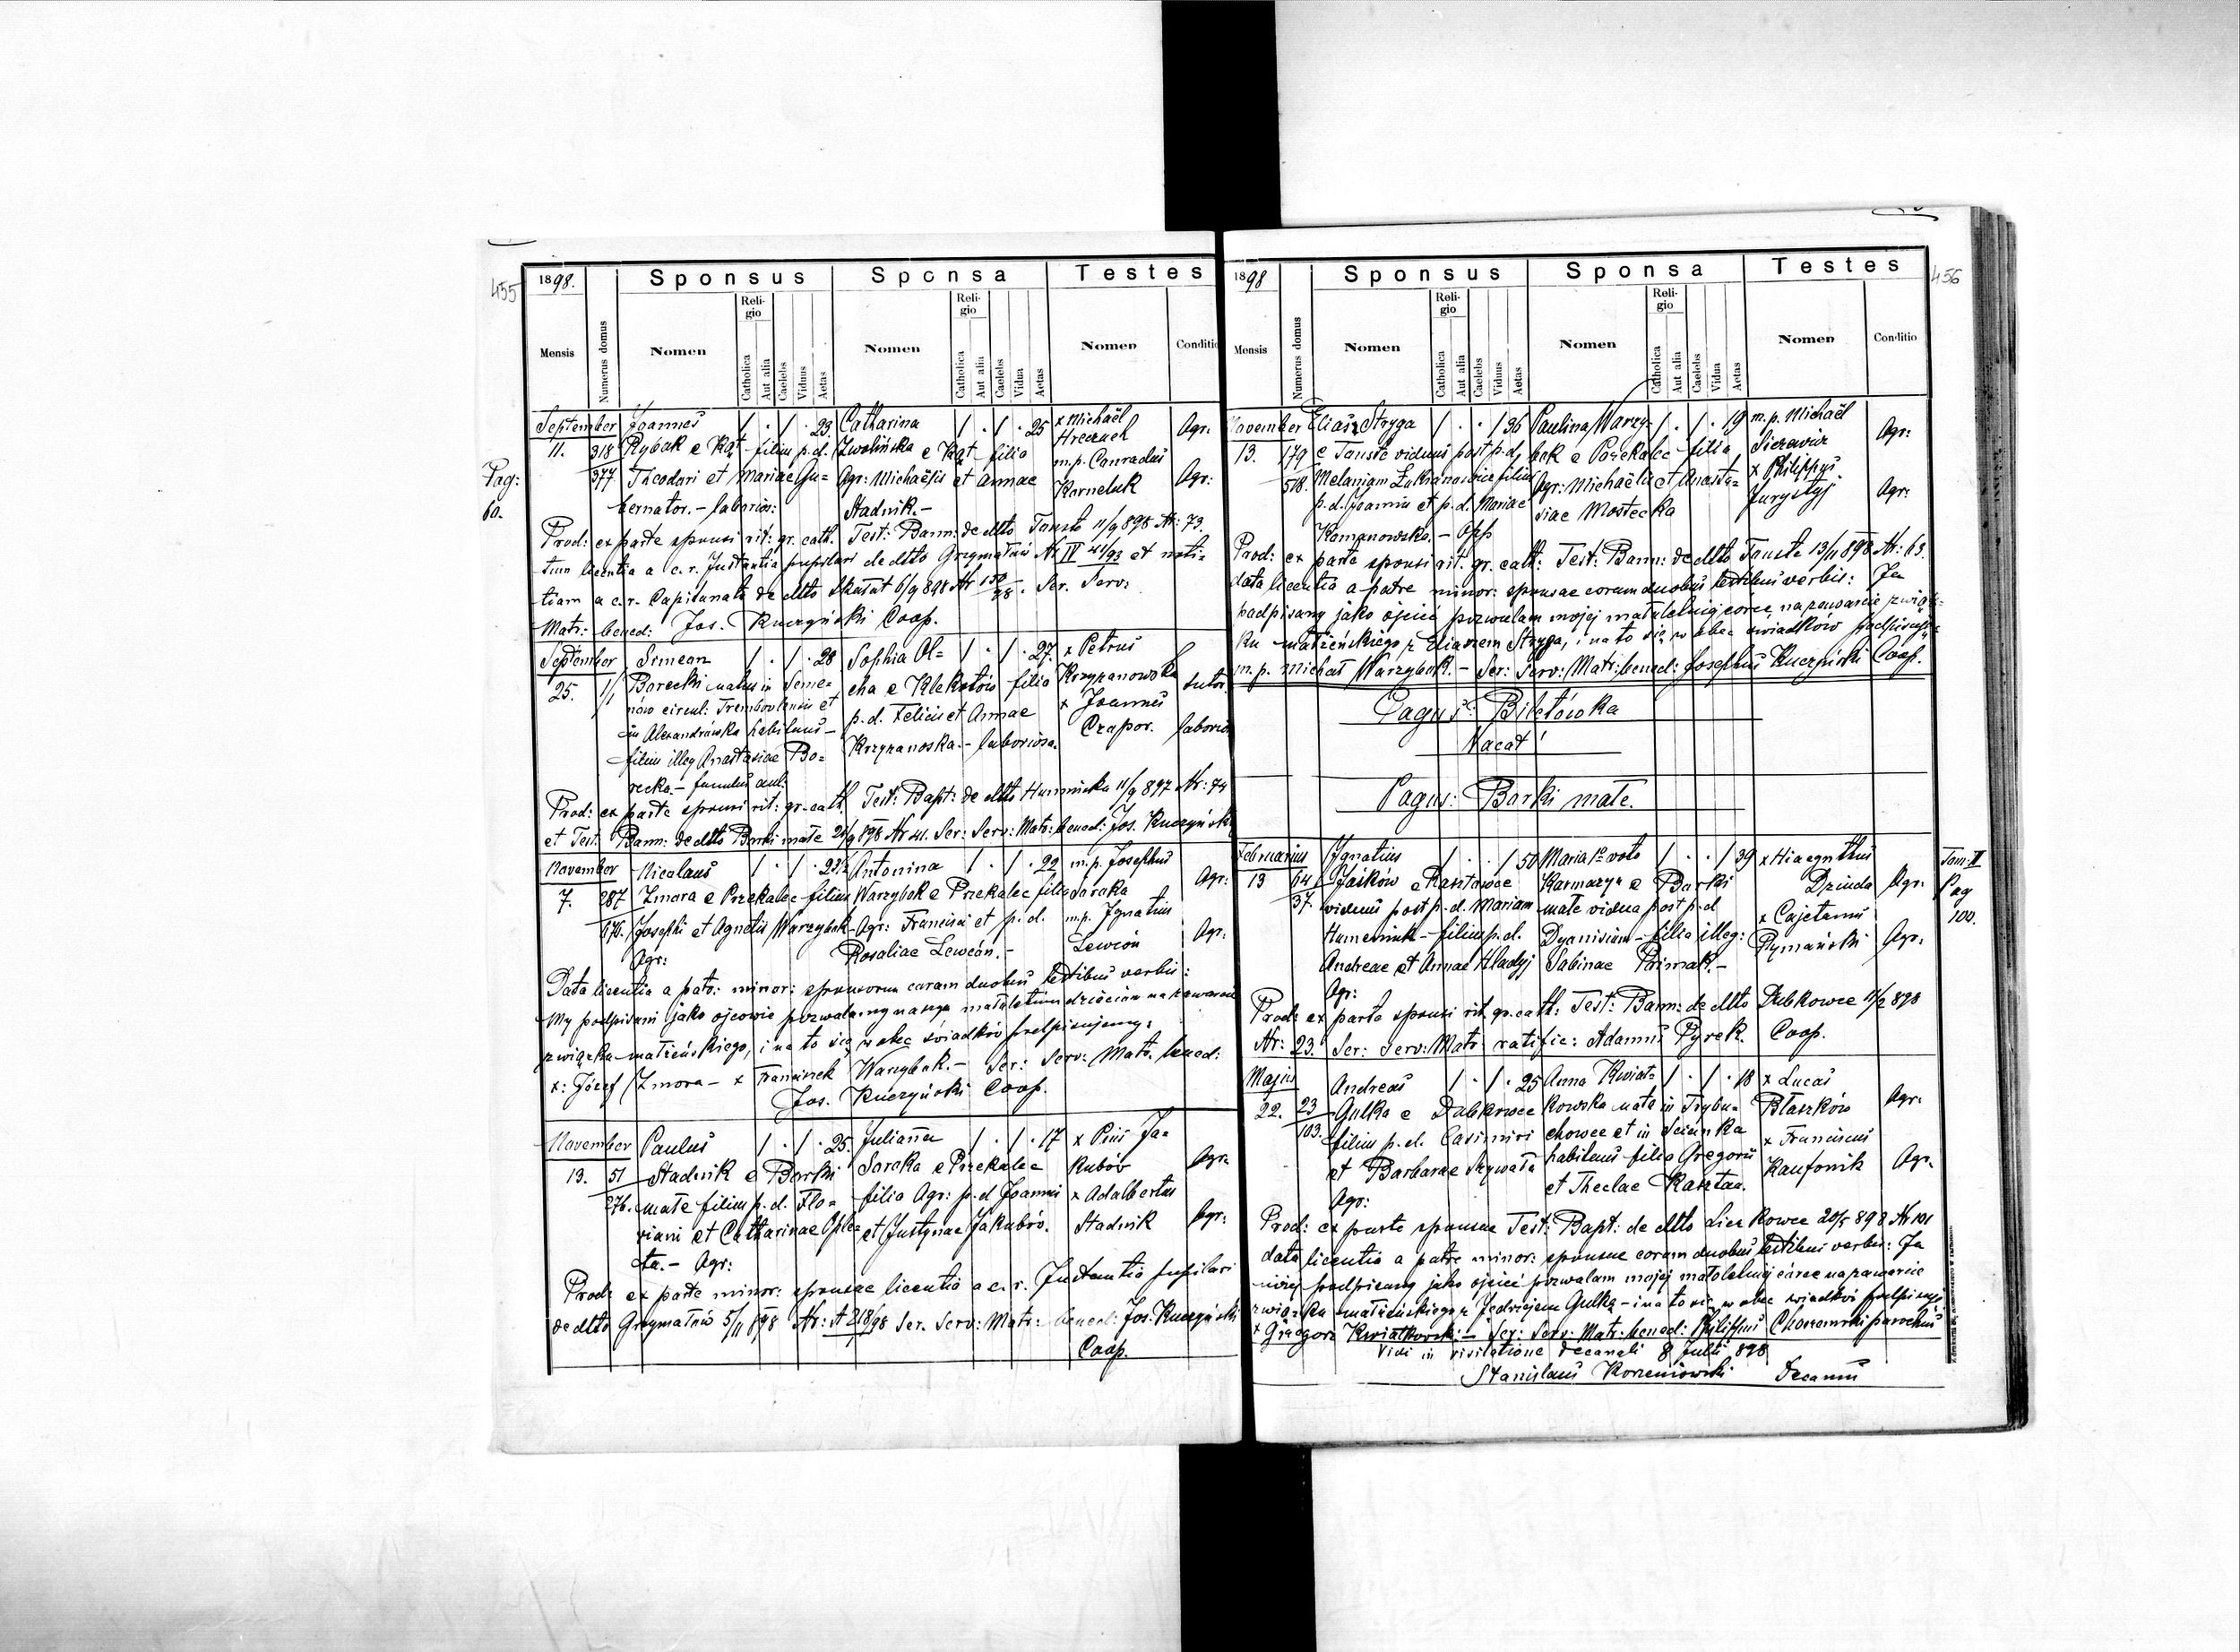 455
1898.
Sponsus Sponsa Testes
Mensis Numerus domus Nomen Religio Catholica Aut alia Caelebs Viduus Aetas Nomen Religio Catholica Aut alia Caelebs Vidua Aetas Nomen Conditio
Pag:
60.
September Joannes / . / . 23 Catharina / . / . 25 x Michaël
Hreczuch Agr:
11. 318 Rybak e Kąt filius p.d. Zwolińska e Kąt filia m.p. Conradus
377 Theodori et Mariae Gu= Agr: Michaëlis et Annae Korneluk Agr:
bernator. - laborios: Stadnik. -
Prod: ex parte sponsi rit: gr. cath. Test: Bann: de dtto Touste 11/9 898 Nr: 73.
tum licentia a c. r. Instantia pupilari de dtto Grzymałów Nr IV 41/93 et noti=
tiam a c. r. Capitanatu de dtto Skałat 6/9 898 Nr 150/98. Ser. Serv:
Matr: bened: Jos. Kuczyński Coop.
September Simeon / . / . 28 Sophia Ol= / . / . 27. x Petrus
25. 1/1 Borecki natus in Seme= cha e Klekotów filia Krzyzanowska sutor
nów circul: Trembovlensis et p.d. Felicis et Annae x Joannes
in Alexandrówka habitans - Krzyzanoska. - laboriosa. Czapor. laborio
filius illeg Anastasiae Bo=
recka. - famulus aul:
Prod: ex parte sponsi rit: gr. cath. Test: Bapt: de dtto Humniska 11/9 897 Nr: 74
et Test: Bann: de dtto Borki małe 25/9 898 Nr 41. Ser: Serv: Matr: bened: Jos. Kuczyński
November Nicolaus / . / . 23½ Antonina / . / . 22 m.p. Josephus
7. 287 Zmora e Przekalec filius Warzybok e Przekalec filia Saraka Agr:
676. Josephi et Agnetis Warzybok Agr: Francisci et p.d. m.p. Ignatius
Agr: Rosaliae Lewcón. - Lewcón Agr:
Data licentia a patr: minor: sponsorum coram duobus testibus verbis:
My podpisani jako ojcowie pozwalamy naszym małoletnim dzieciom na zawarcie
związku małżeńskiego, i na to się w obec świadków podpisujemy:
x: Józef Zmora - x Franciszek Warzybok. - Ser: Serv: Matr. bened:
Jos. Kuczyński Coop.
November Paulus / . / . 25. Julianna / . / . 17 x Pius Ja=
13. 51 Stadnik e Borki Saraka e Przekalec kubów Agr.
276. małe filius p.d. Flo= filia Agr: p.d Joannis x Adalbertus
riani et Catharinae Ople= et Justynae Jakubów. Stadnik Agr:
ta. - Agr:
Prod: ex parte minor: sponsae licentia a c. r. Instantia pupilari
de dtto Grzymałów 5/11 898 Nr: A 218/98 Ser. Serv: Matr: bened: Jos. Kuczyński
Coop.
456
1898
Sponsus Sponsa Testes
Mensis Numerus domus Nomen Religio Catholica Aut alia Caelebs Viduus Aetas Nomen Religio Catholica Aut alia Caelebs Vidua Aetas Nomen Conditio
November Elias Stryga / . . / 36 Paulina Warzy- / . / . 19 m.p. Michaël
13. 179 e Touste viduus post p.d. bok e Przekalec filia Sierewicz Agr:
518. Melaniam Łukianowicz filius Agr: Michaëlis et Anasta= x Philippus
p.d. Joannis et p.d. Mariae siae Mostecka Jurystyj Agr:
Romanowska. - Opp
Prod: ex parte sponsi rit. gr. cath: Test: Bann: de dtto Touste 13/11 898 Nr: 63.
data licentia a patre minor: sponsae coram duobus testibus verbis: Ja
podpisany jako ojciec pozwalam mojej małoletniej córce na zawarcie związ=
ku małżeńskiego z Eliaszem Stryga, i na to się w obec świadków podpisuję
m.p. Michał Warzybok. - Ser: Serv: Matr: bened: Josephus Kuczyński Coop.
Pagus: Biletówka
Vacat!
Pagus: Borki małe.
Februarius Ignatius / . . / 50 Maria 1º voto / . . / 39 x Hiacynthus Tom: II
13 64 Jaików e Rasztowce Karmazyn e Borki Dziuda Agr. Pag
37. viduus post p.d. Mariam małe vidua post p.d x Cajetanus 100.
Humeniuk - filius p.d. Dyonisium - filia illeg: Rymański Agr:
Andreae et Annae Hladyj Sabinae Prímak. -
Agr:
Prod: ex parte sponsi rit gr. cath: Test: Bann: de dtto Dubkowce 11/2 898
Nr: 23. Ser: Serv: Matr ratific: Adamus Pyrek. Coop.
Majus Andreas / . / . 25 Anna Kwiat= / . / . 18 x Lucas
22. 23 Gulka e Dubkowce kowska nata in Trybu= Błaszków Agr:
103. filius p.d. Casimiri chowce et in Ścianka x Franciscus
et Barbarae Szywała habitans filia Gregorii Kaufonik Agr.
Agr: et Theclae Kasztan.
Prod: ex parte sponsae Test: Bapt: de dtto 20/5 898 Nr 101
data licentia a patre minor: sponsae coram duobus testibus verbis: Ja
niżej podpisany jako ojciec pozwalam mojej małoletniej córce na zawarcie
związku małżeńskiego z Jędrzejem Gulką - i na to się w obec świadków podpisuję
x Grzegorz Kwiatkowski. - Ser: Serv: Matr: bened: Philippus parochus
Vidi in visitatione decanali 8 Julii 898
Stanislaus Korzeniowski Decanus